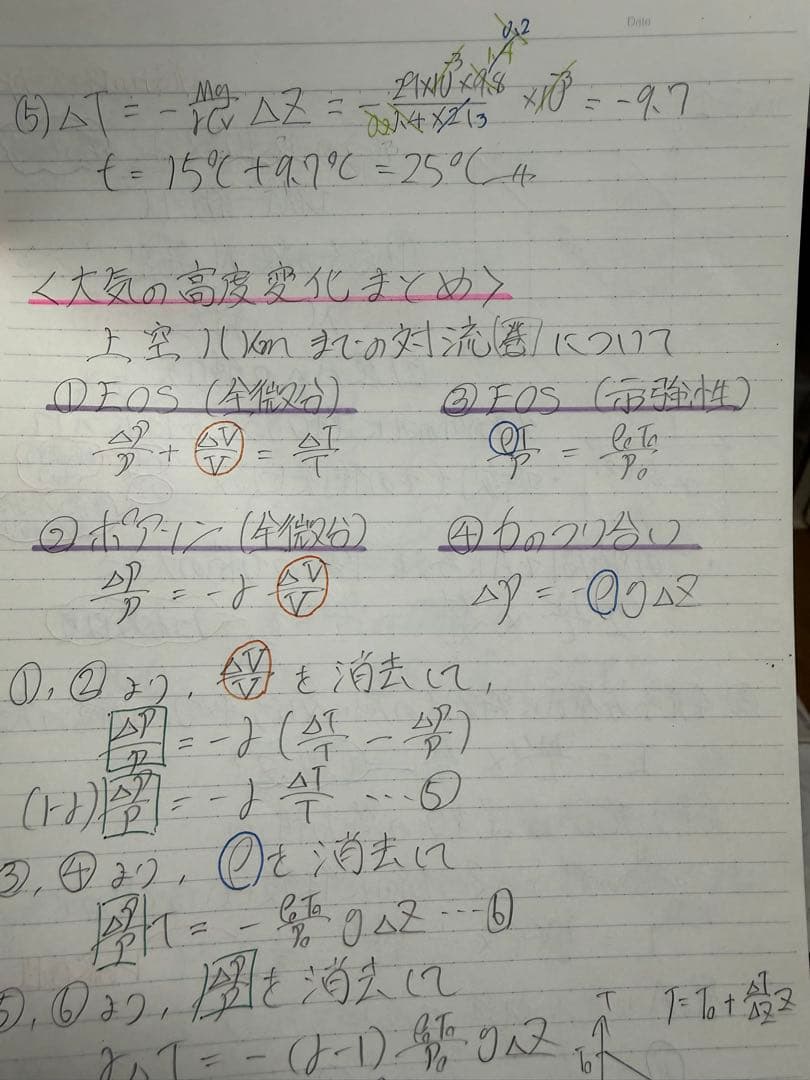 Date
(5) ΔT = - Mg/γCv ΔZ = - 29×10⁻³×9.8/1.4×213 ×10³ = -9.7
t = 15℃ + 9.7℃ = 25℃
<大気の高度変化まとめ>
上空11kmまでの対流(圏)について
① EOS (全微分) ③ EOS (示強性)
ΔP/P + ΔV/V = ΔT/T ρT/P = ρ₀T₀/P₀
② ポアソン (全微分) ④ 力のつり合い
ΔP/P = -γ ΔV/V ΔP = -ρgΔZ
①, ② より, ΔV/V を消去して,
ΔP/P = -γ (ΔT/T - ΔP/P)
(1-γ) ΔP/P = -γ ΔT/T … ⑤
③, ④ より, ρを消去して
ΔP/P T = - ρ₀T₀/P₀ gΔZ … ⑥
⑤, ⑥ より, ΔP/P を消去して
γΔT = -(γ-1) ρ₀T₀/P₀ gΔZ
T
T₀
T = T₀ + ΔT/ΔZ Z